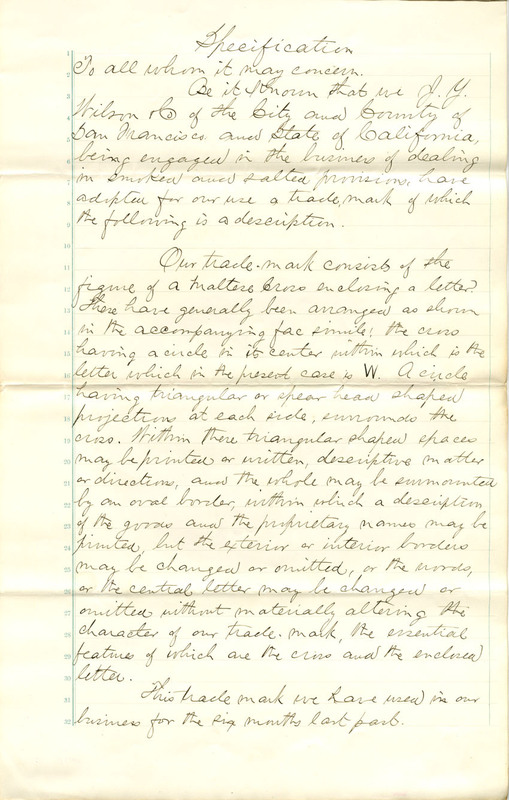 Specification
1
2 To all whom it may concern.
3 Be it Known that we J. Y.
4 Wilson & C of the City and County of
5 San Francisco and State of California,
6 being engaged in the business of dealing
7 in smoked and salted provisions, have
8 adopted for our use a trade, mark of which
9 the following is a description.
10
11 Our trade-mark consists of the
12 figure of a Maltese Cross enclosing a letter.
13 These have generally been arranged as shown
14 in the accompanying fac simile; the cross
15 having a circle in its center within which is the
16 letter which in the present case is W. A circle
17 having triangular or spear head shaped
18 projections at each side, surrounds the
19 cross. Within these triangular shaped spaces
20 may be printed or written, descriptive matter
21 or directions, and the whole may be surmounted
22 by an oval border, within which a description
23 of the goods and the proprietary names may be
24 printed, but the exterior or interior borders
25 may be changed or omitted, or the words,
26 or the central letter may be changed or
27 omitted without materially altering the
28 character of our trade-mark, the essential
29 features of which are the cross and the enclosed
30 letter.
31 This trade mark we have used in our
32 business for the six months last past.